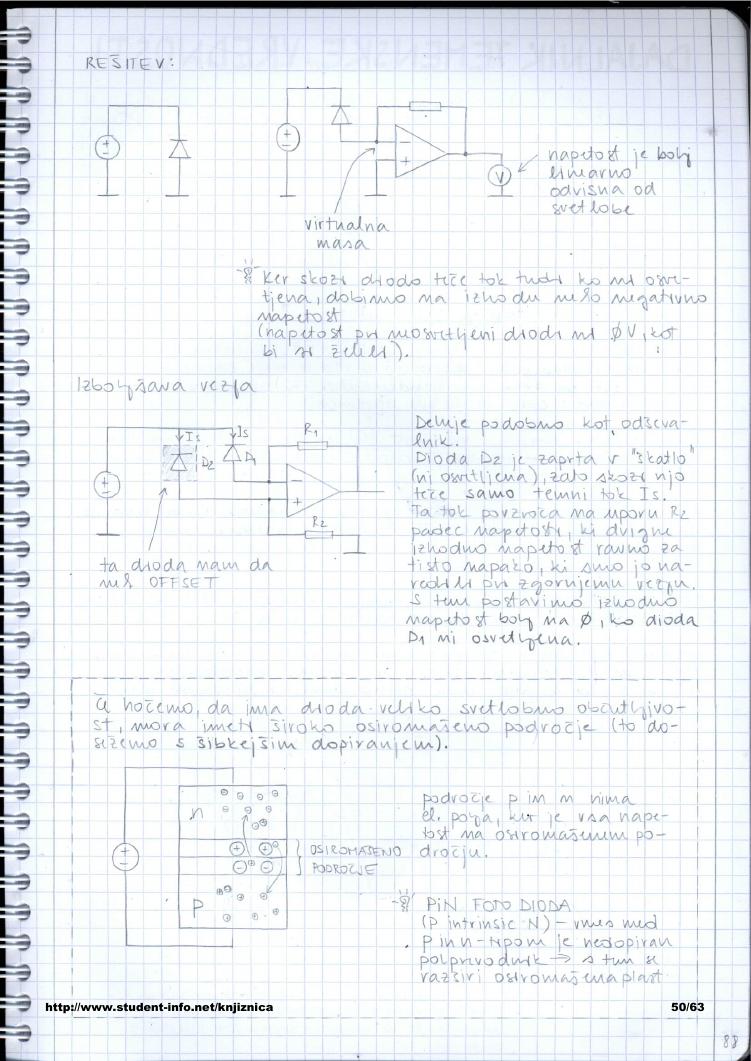 REŠITEV:
napetost je bolj
linearno
odvisna od
svetlobe
V
virtualna
masa
Ker skozi diodo teče tok tudi ko ni osve-
tljena, dobimo na izhodu neko negativno
napetost
(napetost pri neosvetljeni diodi ni ØV, kot
bi si želeli).
Izboljšava vezja
Is
Is
D2
D1
R1
R2
ta dioda nam da
nek OFFSET
Deluje podobno kot odšteva-
lnik.
Dioda D2 je zaprta v "škatlo"
(ni osvetljena), zato skozi njo
teče samo temni tok Is.
Ta tok povzroča na uporu R2
padec napetosti, ki dvigne
izhodno napetost ravno za
tisto napako, ki smo jo na-
redili pri zgornjemu vezju.
S tem postavimo izhodno
napetost bolj na Ø, ko dioda
D1 ni osvetljena.
Če hočemo, da ima dioda veliko svetlobno občutljivo-
st, mora imeti široko osiromašeno področje (to do-
sežemo s šibkejšim dopiranjem).
n
P
OSIROMAŠENO
PODROČJE
področje p in n nima
el. polja, ker je vsa nape-
tost na osiromašenem po-
dročju.
PiN FOTO DIODA
(P intrinsic N) – vmes med
p in n-tipom je nedopiran
polprevodnik → s tem se
razširi osiromašena plast
http://www.student-info.net/knjiznica
50/63
88